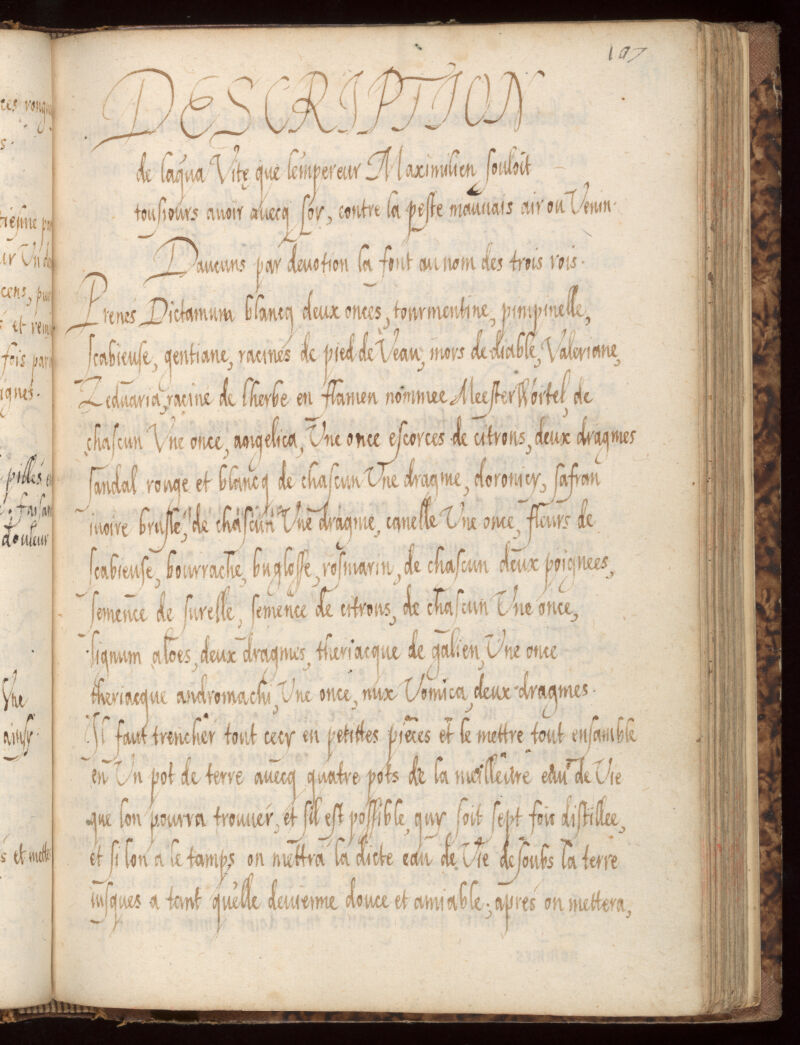 197
DESCRIPTION
de laqua Vitę que lempereur Maximilien souloit
tousiours auoir auecq soy, contre la peste mauuais air ou Venin.
Daucuns par deuotion la font au nom des trois rois.
Prenes Dictamum blancq deux onces, tourmentine, pimpinelle,
scabieuse, gentiane, racines de pied de Veau, mors de diable, Valeriane,
Zeduaria, racine de lherbe en flamen nommee Meester Wortel, de
chascun Vne once, angelica, Vne once escorces de citrons, deux dragmes
sandal rouge et blancq de chascun Vne dragme, doronicy, safran
iuoire brusle, de chascun Vne dragme, canelle Vne once, fleurs de
scabieuse, bourrache, buglosse, rosmarin, de chascun deux poignees,
semence de surelle, semence de citrons, de chascun Vne once,
lignum aloes, deux dragmes, theriacque de galien, Vne once
theriacque andromachi, Vne once, nux Vomica, deux dragmes.
Il faut trencher tout cecy en petittes pieces et le mettre tout ensamble
en Vn pot de terre auecq quatre pots de la meilleure eau de Vie
que lon pourra trouuer, et sil est possible, quy soit sept fois distillee,
et si lon a le tamps on mettra la dicte eau de Vie desoubs la terre
iusques a tant quelle deuienne douce et amiable; apres on mettera,